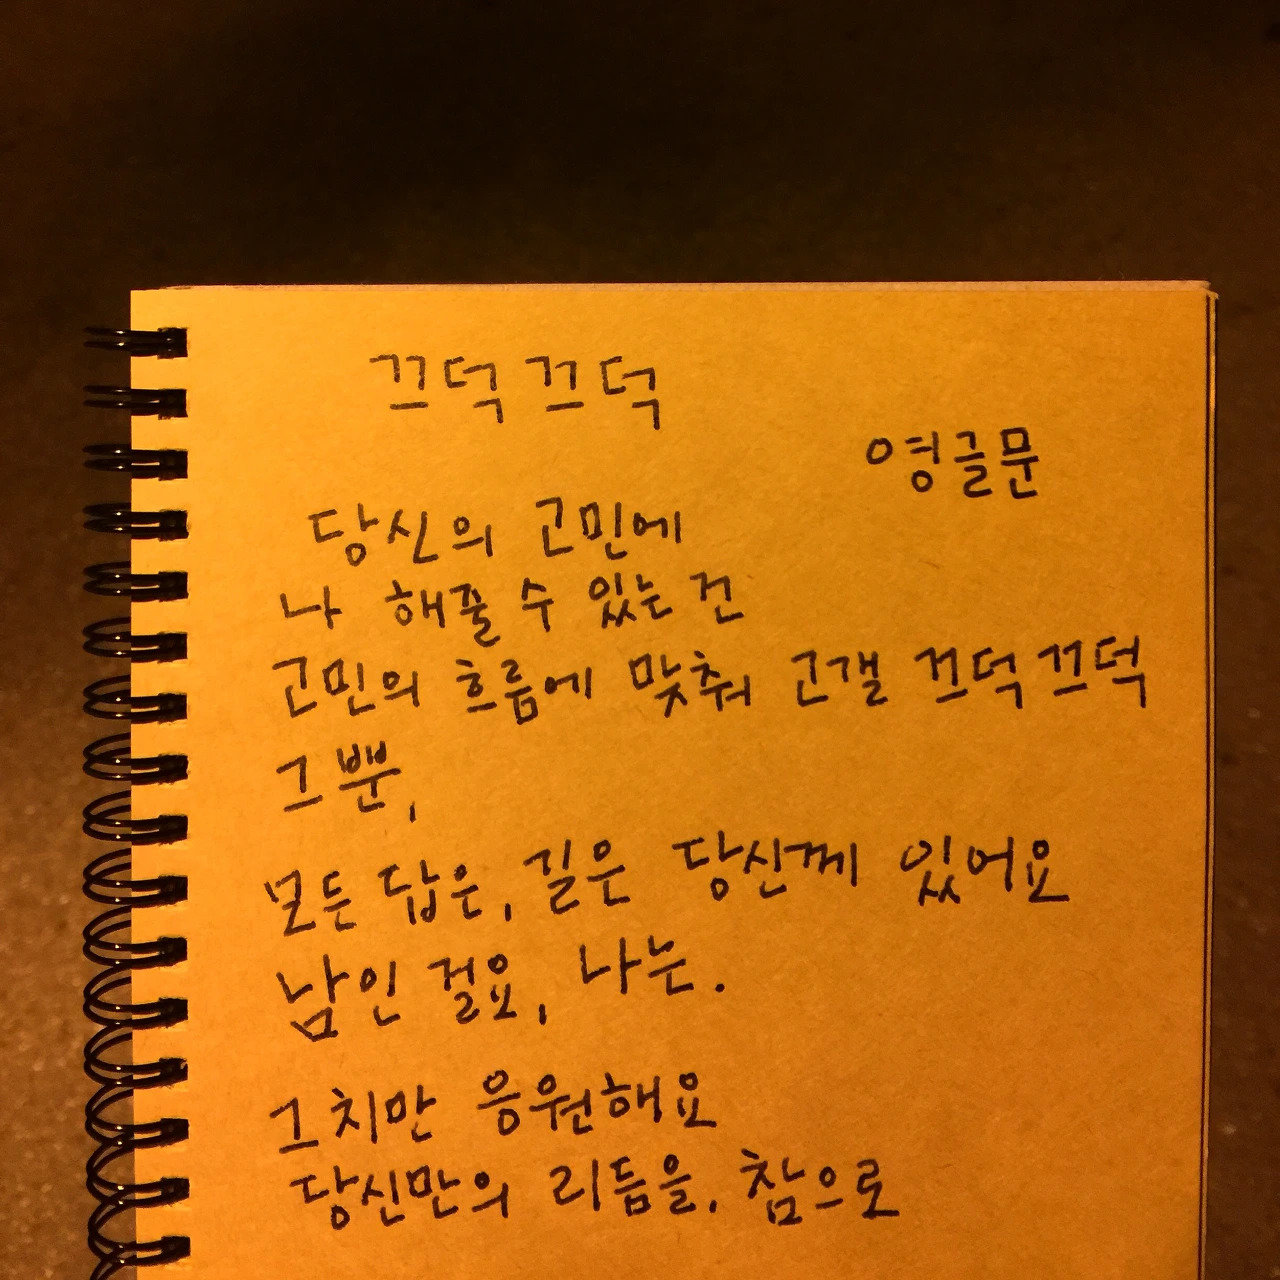 끄덕 끄덕
영글문
당신의 고민에
나 해줄 수 있는 건
고민의 흐름에 맞춰 고갤 끄덕끄덕
그 뿐,
모든 답은, 길은 당신께 있어요
남인 걸요, 나는.
그치만 응원해요
당신만의 리듬을, 참으로